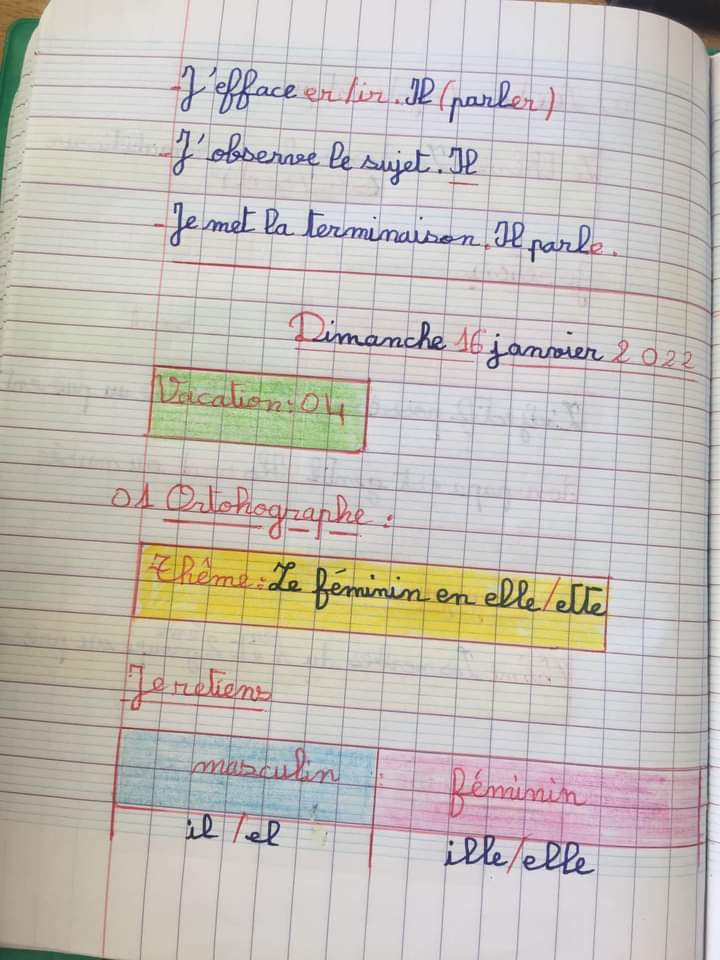 - J'efface er/ir. Il (parler)
- J'observe le sujet. Il
- Je met la terminaison. Il parle.
Dimanche 16 janvier 2022
Vacation: 04
01 Ortohographe :
Thême: Le féminin en elle/ette
Je retiens
masculin : féminin
il/el ille/elle